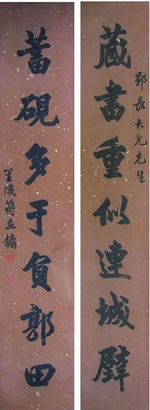 藏書重似連城璧
大兄先生
蓄硯多于負郭田
笙陔蔣立鏞